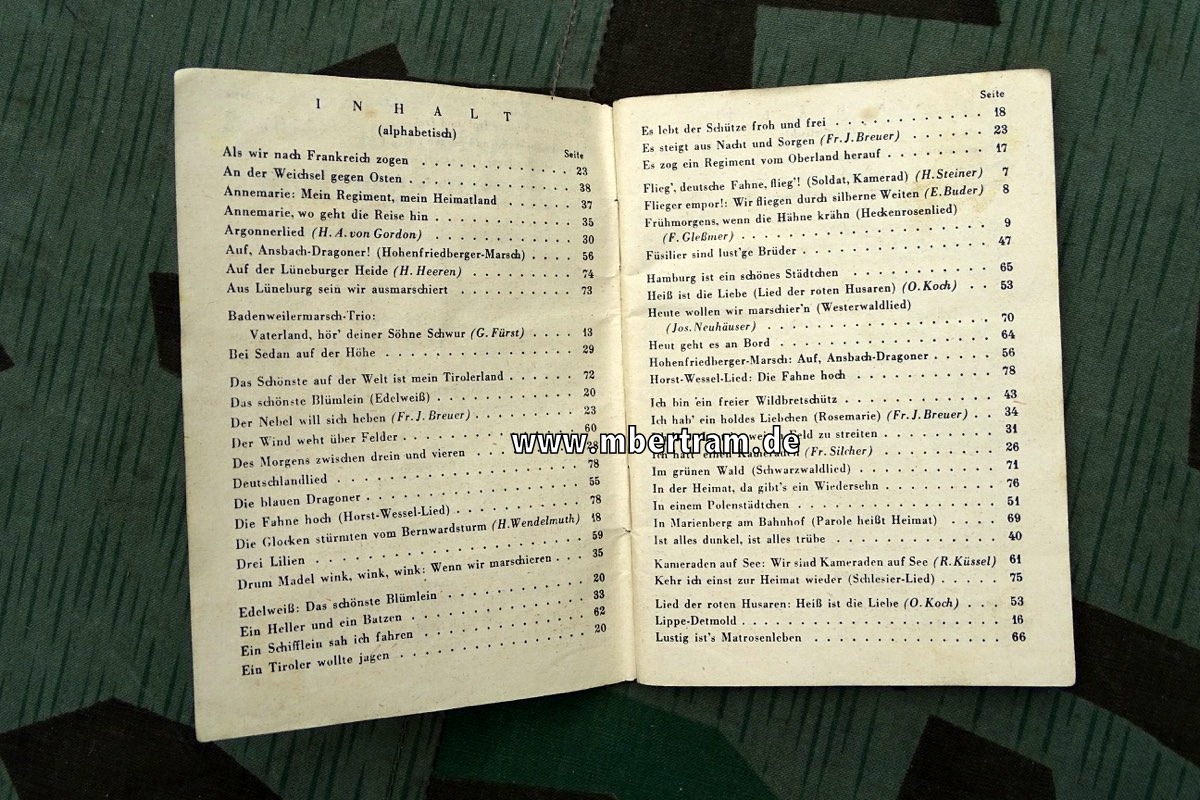 I N H A L T
(alphabetisch)
Seite
Als wir nach Frankreich zogen . . . . . . . . . . . 23
An der Weichsel gegen Osten . . . . . . . . . . . . 38
Annemarie: Mein Regiment, mein Heimatland . . . . . 37
Annemarie, wo geht die Reise hin . . . . . . . . . . 35
Argonnerlied (H. A. von Gordon) . . . . . . . . . . 30
Auf, Ansbach-Dragoner! (Hohenfriedberger-Marsch) . . . . 56
Auf der Lüneburger Heide (H. Heeren) . . . . . . . . 74
Aus Lüneburg sein wir ausmarschiert . . . . . . . . 73
Badenweilermarsch-Trio:
Vaterland, hör' deiner Söhne Schwur (G. Fürst) . . . . 13
Bei Sedan auf der Höhe . . . . . . . . . . . . . . 29
Das Schönste auf der Welt ist mein Tirolerland . . . . . . 72
Das schönste Blümlein (Edelweiß) . . . . . . . . . . 20
Der Nebel will sich heben (Fr. J. Breuer) . . . . . . . 23
Der Wind weht über Felder . . . . . . . . . . . . 60
Des Morgens zwischen drein und vieren . . . . . . . 28
Deutschlandlied . . . . . . . . . . . . . . . . . 78
Die blauen Dragoner . . . . . . . . . . . . . . . 55
Die Fahne hoch (Horst-Wessel-Lied) . . . . . . . . . 78
Die Glocken stürmten vom Bernwardsturm (H. Wendelmuth) 18
Drei Lilien . . . . . . . . . . . . . . . . . . . 59
Drum Madel wink, wink, wink: Wenn wir marschieren . . . 35
Edelweiß: Das schönste Blümlein . . . . . . . . . . 20
Ein Heller und ein Batzen . . . . . . . . . . . . . 33
Ein Schifflein sah ich fahren . . . . . . . . . . . . 62
Ein Tiroler wollte jagen . . . . . . . . . . . . . . 20
Seite
Es lebt der Schütze froh und frei . . . . . . . . . . 18
Es steigt aus Nacht und Sorgen (Fr. J. Breuer) . . . . . 23
Es zog ein Regiment vom Oberland herauf . . . . . . . 17
Flieg', deutsche Fahne, flieg'! (Soldat, Kamerad) (H. Steiner) 7
Flieger empor!: Wir fliegen durch silberne Weiten (E. Buder) 8
Frühmorgens, wenn die Hähne krähn (Heckenrosenlied)
(F. Gleßmer) . . . . . . . . . . . . . . . . . 9
Füsilier sind lust'ge Brüder . . . . . . . . . . . . 47
Hamburg ist ein schönes Städtchen . . . . . . . . . 65
Heiß ist die Liebe (Lied der roten Husaren) (O. Koch) . . 53
Heute wollen wir marschier'n (Westerwaldlied)
(Jos. Neuhäuser) . . . . . . . . . . . . . . . 70
Heut geht es an Bord . . . . . . . . . . . . . . 64
Hohenfriedberger-Marsch: Auf, Ansbach-Dragoner . . . . 56
Horst-Wessel-Lied: Die Fahne hoch . . . . . . . . . 78
Ich bin ein freier Wildbretschütz . . . . . . . . . . 43
Ich hab' ein holdes Liebchen (Rosemarie) (Fr. J. Breuer) . . 34
Feld zu streiten . . . . . . . . 31
Ich hatt' einen Kameraden (Fr. Silcher) . . . . . . . . 26
Im grünen Wald (Schwarzwaldlied) . . . . . . . . . . 71
In der Heimat, da gibt's ein Wiedersehn . . . . . . . . 76
In einem Polenstädtchen . . . . . . . . . . . . . 51
In Marienberg am Bahnhof (Parole heißt Heimat) . . . . 69
Ist alles dunkel, ist alles trübe . . . . . . . . . . . 40
Kameraden auf See: Wir sind Kameraden auf See (R. Küssel) 61
Kehr ich einst zur Heimat wieder (Schlesier-Lied) . . . . 75
Lied der roten Husaren: Heiß ist die Liebe (O. Koch) . . . 53
Lippe-Detmold . . . . . . . . . . . . . . . . . 16
Lustig ist's Matrosenleben . . . . . . . . . . . . . 66
www.mbertram.de